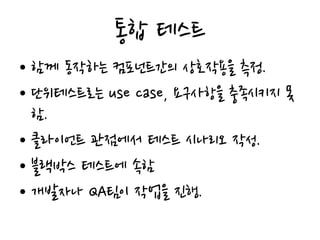 통합 테스트
• 함께 동작하는 컴포넌트간의 상호작용을 측정.
• 단위테스트로는 use case, 요구사항을 충족시키지 못
함.
• 클라이언트 관점에서 테스트 시나리오 작성.
• 블랙박스 테스트에 속함
• 개발자나 QA팀이 작업을 진행.